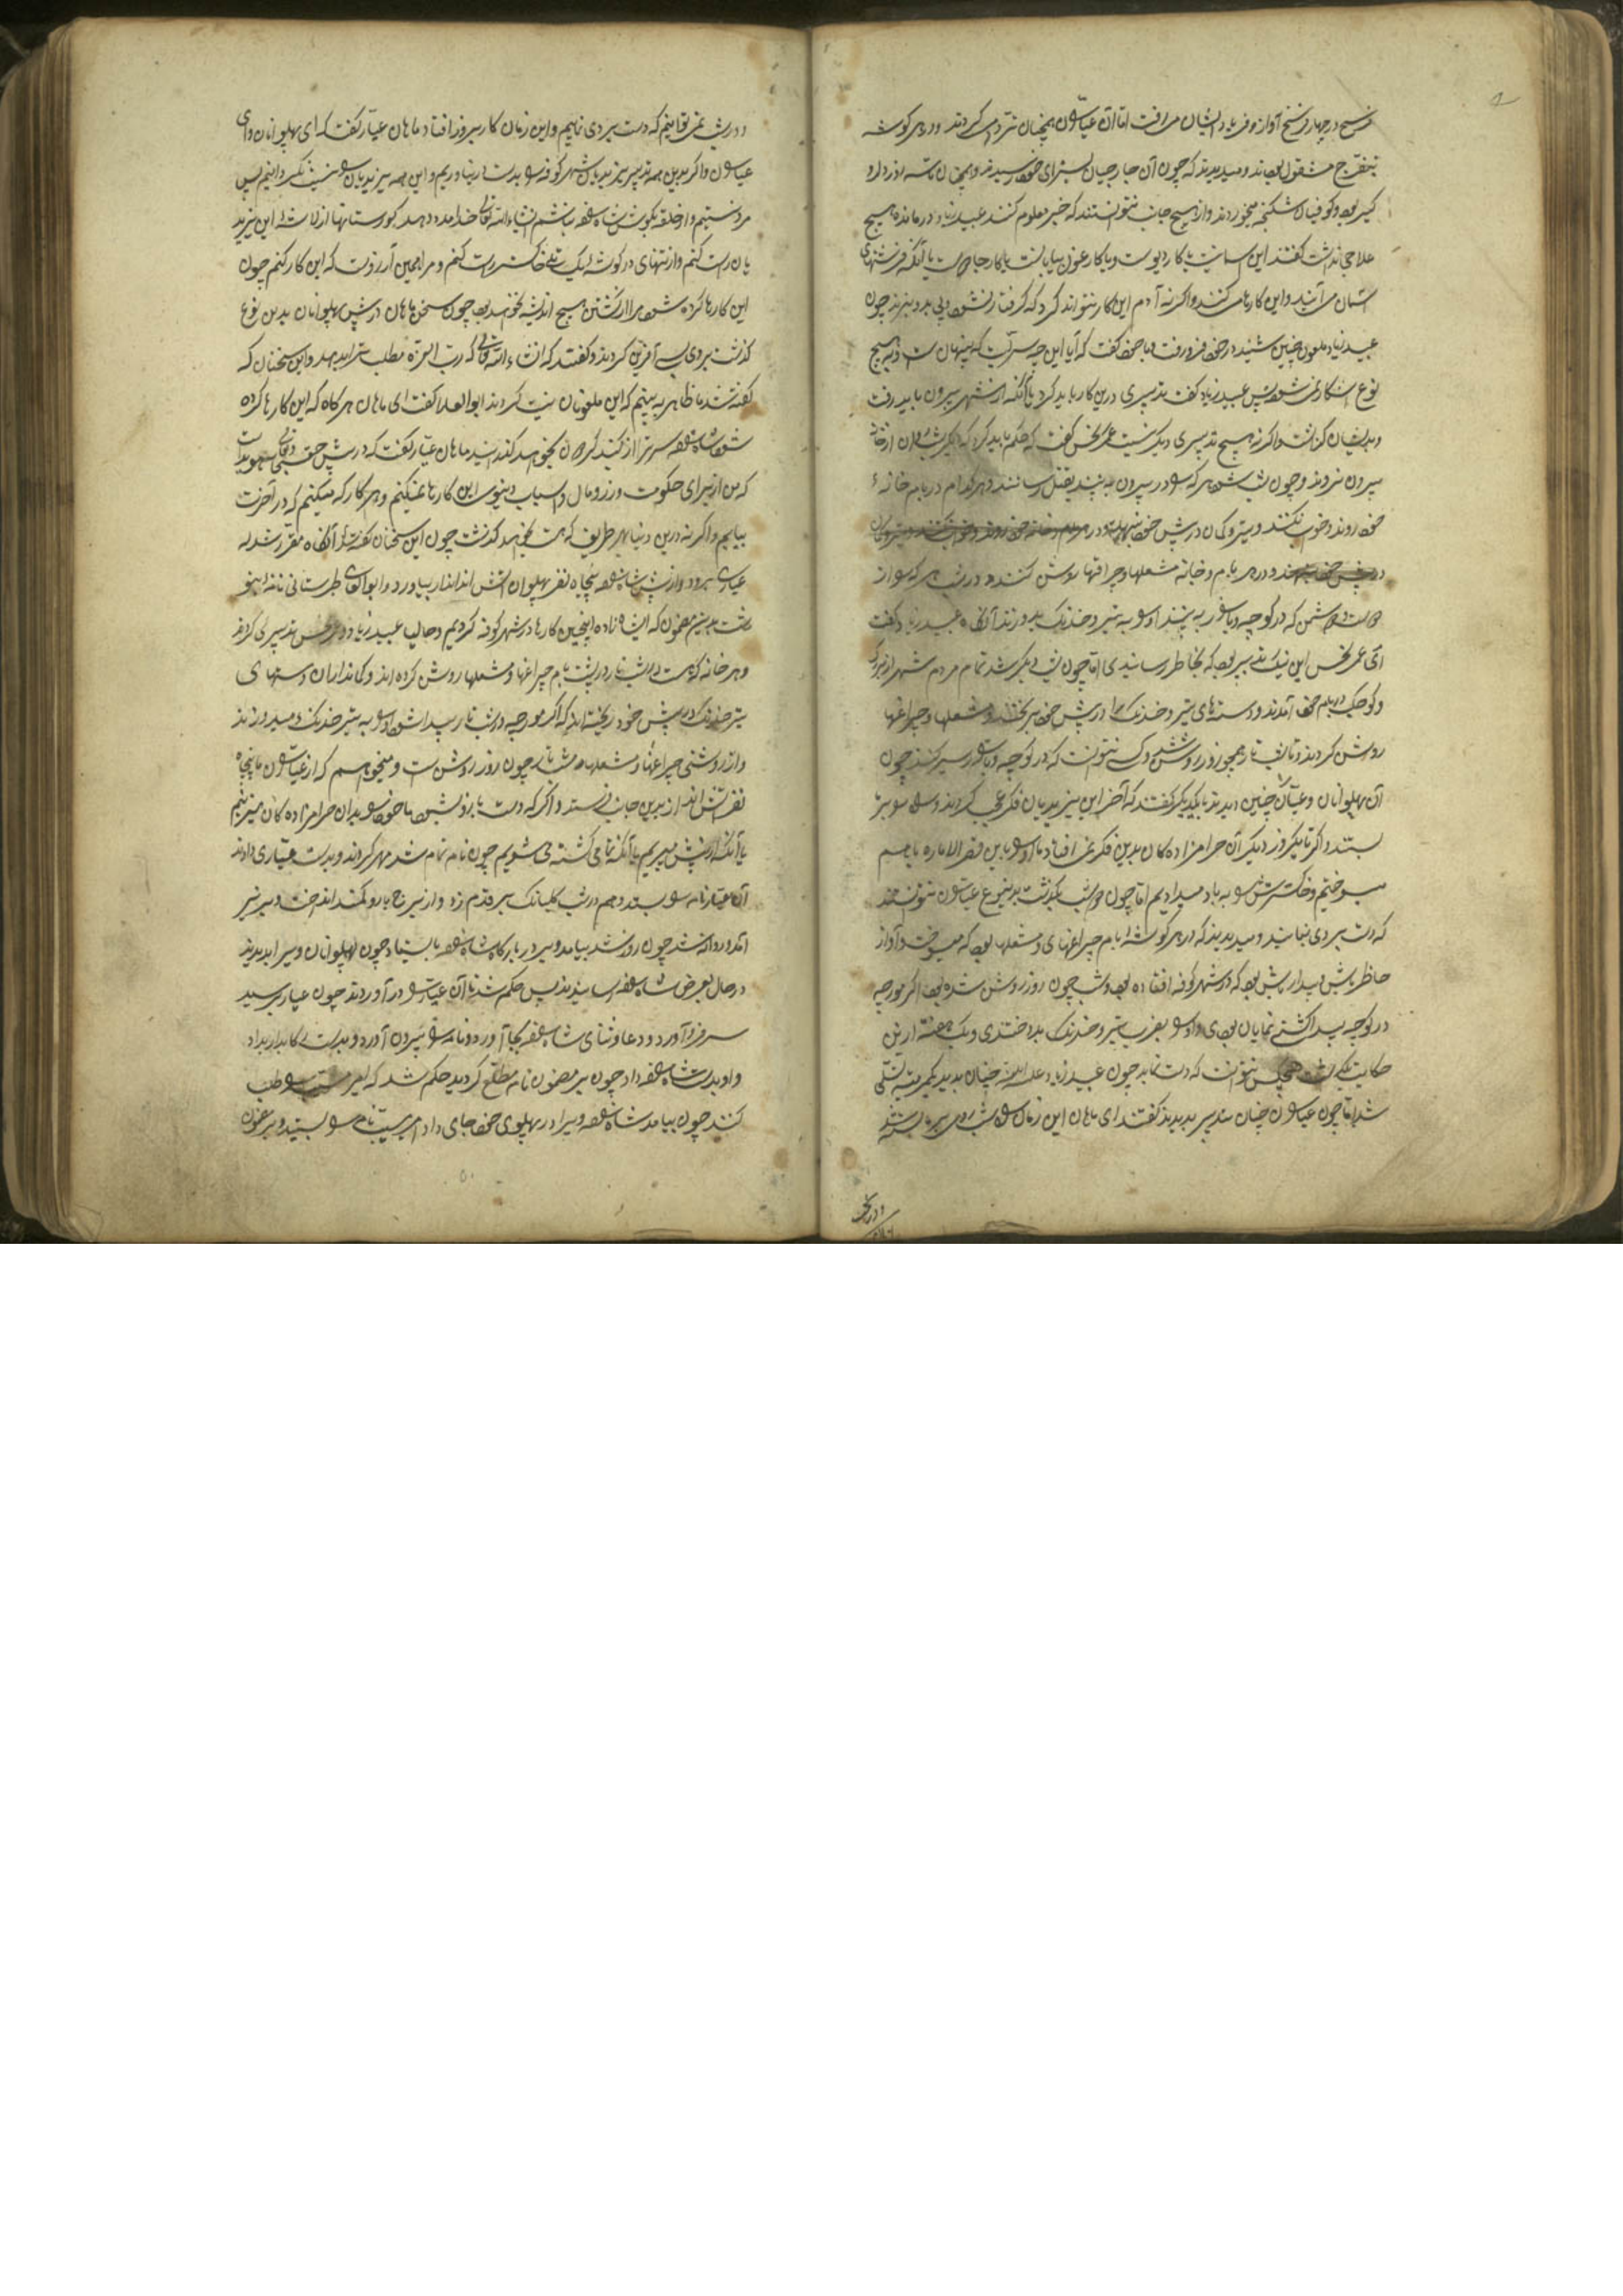 فرسخ در چهار فرسخ آواز و فریاد ایشان می رفت اما آن عیاران همچنان تردد می کردند و در هر گوشه
بتفرج مشغول بودند و میدیدند که چون آن جارچیان بسزای خود رسیدند و همچنان
کیر بود و کوفیان شکنجه میخوردند و از هیچ جانب نتوانستند که خبر معلوم کنند عبید زیاد درمانده هیچ
علاجی نداشت گفتند این یا کار دیو است و یا کار غول بیابانست یا کار یا آنکه فرشتهای
آسمان می آیند و این کارها می کنند و اگر نه آدم این کار نتواند کرد که گرفتار نشود و پی برد چون
عبید زیاد ملعون چنین شنید در خود فرو رفت و با خود گفت که آیا این چه سر است که پنهان است و به هیچ
نوع آشکارا نمی شود پس عبید زیاد گفت تدبیری درین کار باید کرد یا آنکه از شهر بیرون باید رفت
و بدیشان گذاشت و اگر نه هیچ تدبیری دیگر نیست عمر نحس گفت که حکم باید کرد که دیگر شب از خانه
بیرون نروند و چون شب شود هر که را در بیرون به بینند بقتل رسانند و هر کدام در بام خانهٔ
خود روند و خواب نکنند و تیر و کمان در پیش خود بنهند و در
در پیش خود نهند و در هر بام و خانه مشعلها و چراغها روشن کنند و در شب هر که را از
دوست و دشمن که در کوچه و بازار به بینند او را به تیر و خدنگ بدوزند آنگاه عبید زیاد گفت
ای عمر نحس این نیک تدبیر بود که بخاطر رسانیدی اما چون شب دیگر شد تمام مردم شهر از بزرگ
و کوچک در بام خود آمدند و دستهای تیر و خدنگ را در پیش خود بریختند و مشعلها و چراغها
روشن کردند و شب تار همچو روز روشن شد و کسی نتوانست که در کوچه و بازار سیر کند چون
آن پهلوانان و عیاران چنین دیدند با یکدیگر گفتند که آخر این یزیدیان فکر عجب کردند و راه را بر ما
بستند و اگر تا یکروز دیگر آن حرامزاده کان بدین فکر نمی افتادند ما او را با این قصر الاماره باهم
میسوختیم و خاکسترش را به باد میدادیم اما چون دو شب بگذشت بدینوع عیاران نتوانستند
که دست بردی نمایند و میدیدند که در هر گوشه و بام چراغها و مشعلها بود که میسوخت و آواز
حاضر باش بیدار باش بود که در شهر کوفه افتاده بود و شب چون روز روشن شده بود اگر مورچه
در کوچه پیدا گشتی نمایان بودی و او را بضرب تیر و خدنگ بدوختندی و یک هفته ازین
حکایت بگذشت هیچکس نتوانست که دست نماید چون عبید زیاد علیه اللعنه چنان بدید کمرتبه تسلی
شد اما چون عیاران چنان تدبیر بدیدند گفتند ای ماهان این زمان راه شب روی بر ما بسته شد
و در شب نمی توانیم که دست بردی نماییم و این زمان کار بروز افتاد ماهان عیار گفت که ای پهلوانان و ای
عیاران و اگر بدین همه تدبیر یزیدیان شهر کوفه را بدست در نیاوریم و این همه یزیدیان را نیست نگردانیم پس
مرد نیستیم و از حلقه بگوشان شاه نباشم انشاء الله تعالی خدا مدد دهد گورستانها از لاشهٔ این یزید
یان راست کنم و از تنهای در گوشه یک تل خاکستر راست کنم و مرا همین آرزوست که این کار کنم چون
این کارها کرده شود مرا از کشتن هیچ اندیشه نخواهد بود چون سخن ماهان در پیش پهلوانان بدین نوع
گذشت بر وی آفرین کردند و گفتند که انشاء الله تعالی که رب العزة مطلب ترا بدهد و این سخنان که
گفته شد ما ظاهر به بینیم که این ملعونان نیست کردند ابو العلا گفت ای ماهان هر گاه که این کارها کرده
شود شاه سر ترا از گنبد گردون بخواهد گذرانید ماهان عیار گفت که در پیش حق تعالی هویداست
که من از برای حکومت و زر و مال و اسباب دنیوی این کارها نمیکنم و هر کار که میکنم که در آخرت
بیابم و اگر نه درین دنیا بهر طریق که هست بخواهد گذشت چون این سخنان گفته شد آنگاه مقرر شد که
عیاری برود و از پیش شاه پنجاه نفر پهلوان آتش انداز بیاورد و ابو القوی طبرستانی نامهٔ انشا
ساخت بدین مضمون که ای شاهزاده اینچنین کارها در شهر کوفه کردیم و حالیا عبید زیاد و عمر نحس تدبیری کردند
و هر خانه که هست در شب تار در پشت بام چراغها و مشعلها روشن کرده اند و کمانداران دستهای
تیر خدنگ در پیش خود ریخته اند که اگر مورچه در شب تار پیدا شود او را به تیر خدنگ میدوزند
و از روشنی چراغها و مشعلها شب تار چون روز روشن است و میخواهیم که از عیاران ما پنجاه
نفر آتش انداز بدین جانب فرستد و اگر که دست ما بزور شود ما خود را بدان حرامزاده کان میزنیم
یا آنکه از پیش میبریم یا آنکه تمامی کشته می شویم چون نامه تمام شد مهر کردند و بدست عیاری دادند
آن عیار نامه را بستد و هم در شب کلبانگ بر قدم زد و از برج بارو کمند انداخت و بزیر
آمد و روانه شد چون روز شد بیامد و بر در بارگاه شاه بایستاد چون پهلوانان ویرا بدیدند
در حال بعرض شاه رسانیدند پس حکم شد تا آن عیار را در آوردند چون عیار برسید
سر فرو آورد و دعا و ثنای شاه بجا آورد و نامه را بیرون آورد و بدست رکابدار بداد
و او بدست شاه داد چون بر مضمون نامه مطلع گردید حکم شد که امیر مسیب را طلب
کنند چون بیامد شاه ویرا در پهلوی خود جای داد امیر مسیب نامه را بستد و بر خواند